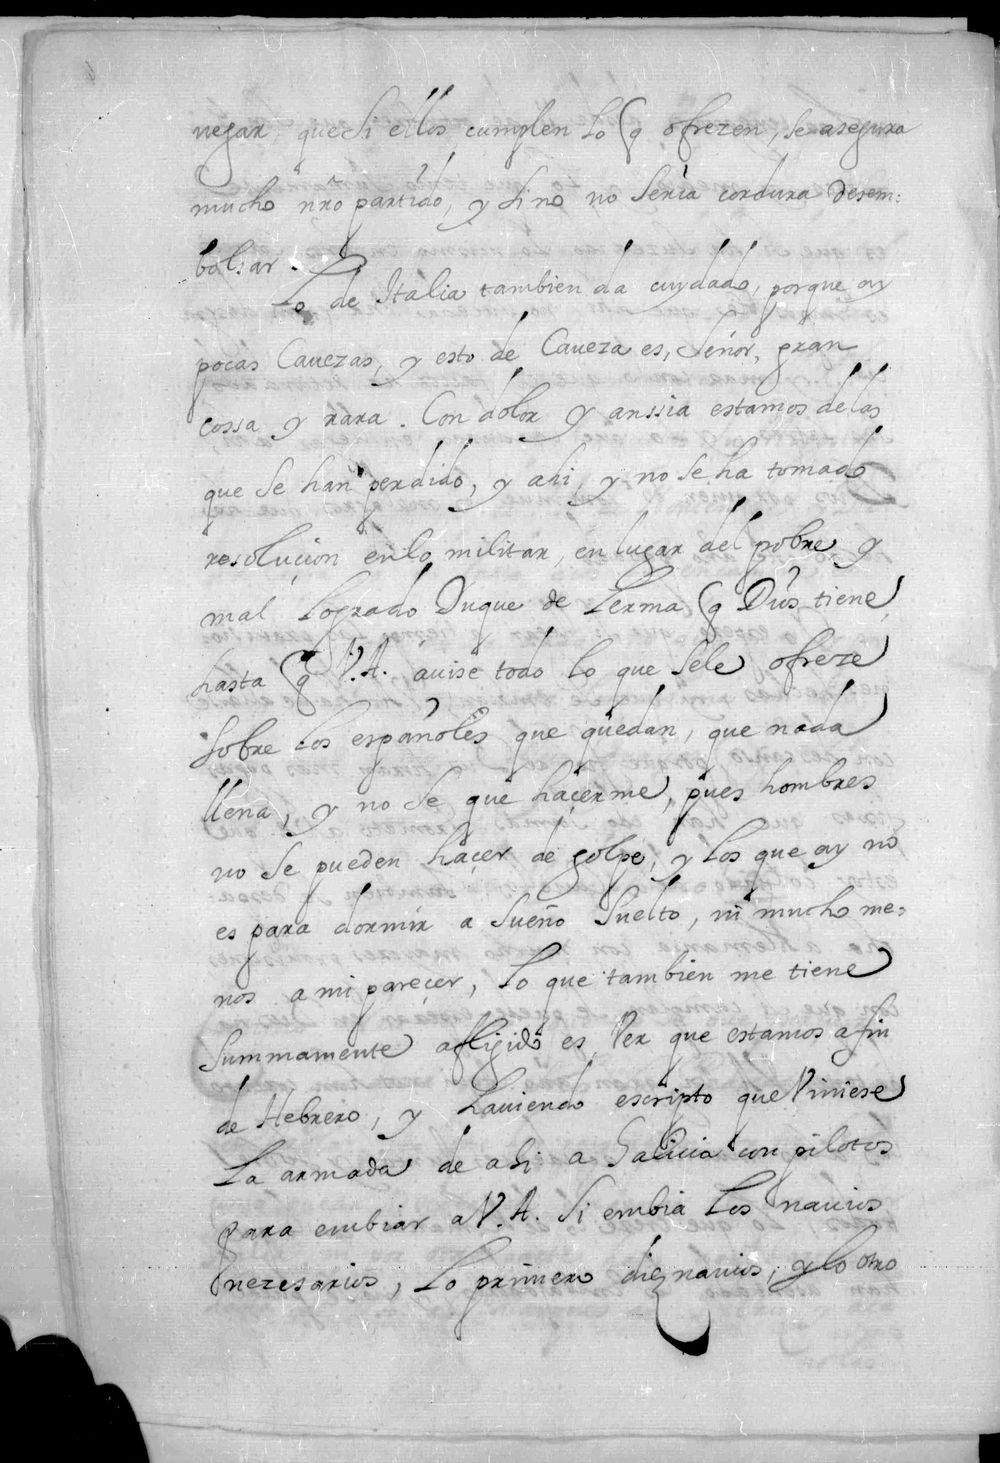 negar, que si ellos cumplen lo q ofrezen, se asegura
mucho nro partido, y sino no seria cordura desem:
bolsar.
Lo de Italia tambien da cuydado, porque ay
pocas Cauezas, y esto de Caueza es, Señor, gran
cossa y rara. Con dolor y anssia estamos delas
que se han perdido, y ahi, y no se ha tomado
resoluçion en lo militar, en lugar del pobre y
mal Logrado Duque de Lerma q Dios tiene
hasta q V.A. auise todo lo que sele ofreze
sobre los españoles que quedan, que nada
llena, y no se que haçerme, pues hombres
no se pueden haçer de golpe, y los que ay no
es para dormir a sueño suelto, ni mucho me:
nos a mi pareçer, lo que tambien me tiene
summamente afligido es Ver que estamos a fin
de Hebrero, y hauiendo escripto que Viniese
la armada de ahi a Galicia con pilotos
para embiar a V.A. si embia los nauios
nezesarios, lo primero dies nauios, y lo otro